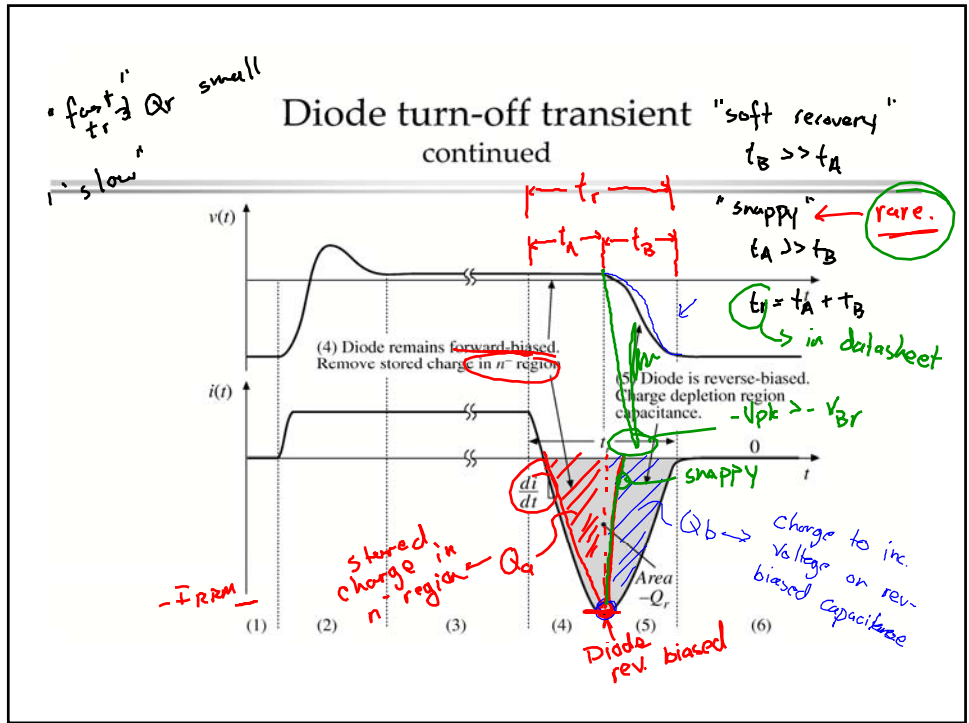 "fast"
tr & Qr small
"slow"
Diode turn-off transient
continued
"soft recovery"
tB >> tA
"snappy" ← rare.
tA >> tB
tr = tA + tB
→ in datasheet
tr
tA
tB
v(t)
t
(4) Diode remains forward-biased.
Remove stored charge in n⁻ region
(5) Diode is reverse-biased.
Charge depletion region
capacitance.
-Vpk > -VBr
i(t)
t
0
t
snappy
di
dt
stored
charge in
n- region
Qa
Qb → Charge to inc.
voltage on rev-
biased capacitance
Area
-Qr
-IRRM
(1)
(2)
(3)
(4)
(5)
(6)
Diode
rev. biased